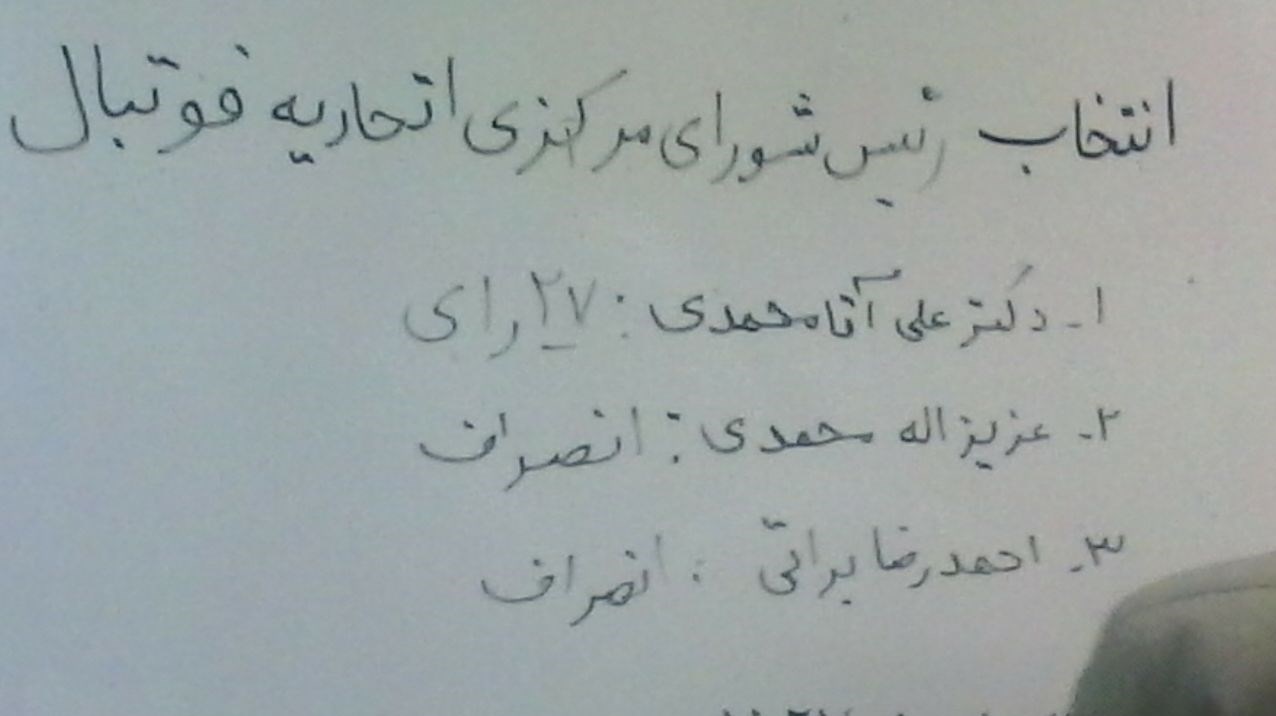 انتخاب رئیس شورای مرکزی اتحادیه فوتبال
۱- دکتر علی آقامحمدی: ۲۷ رای
۲- عزیزاله محمدی: انصراف
۳- احمدرضا براتی: انصراف